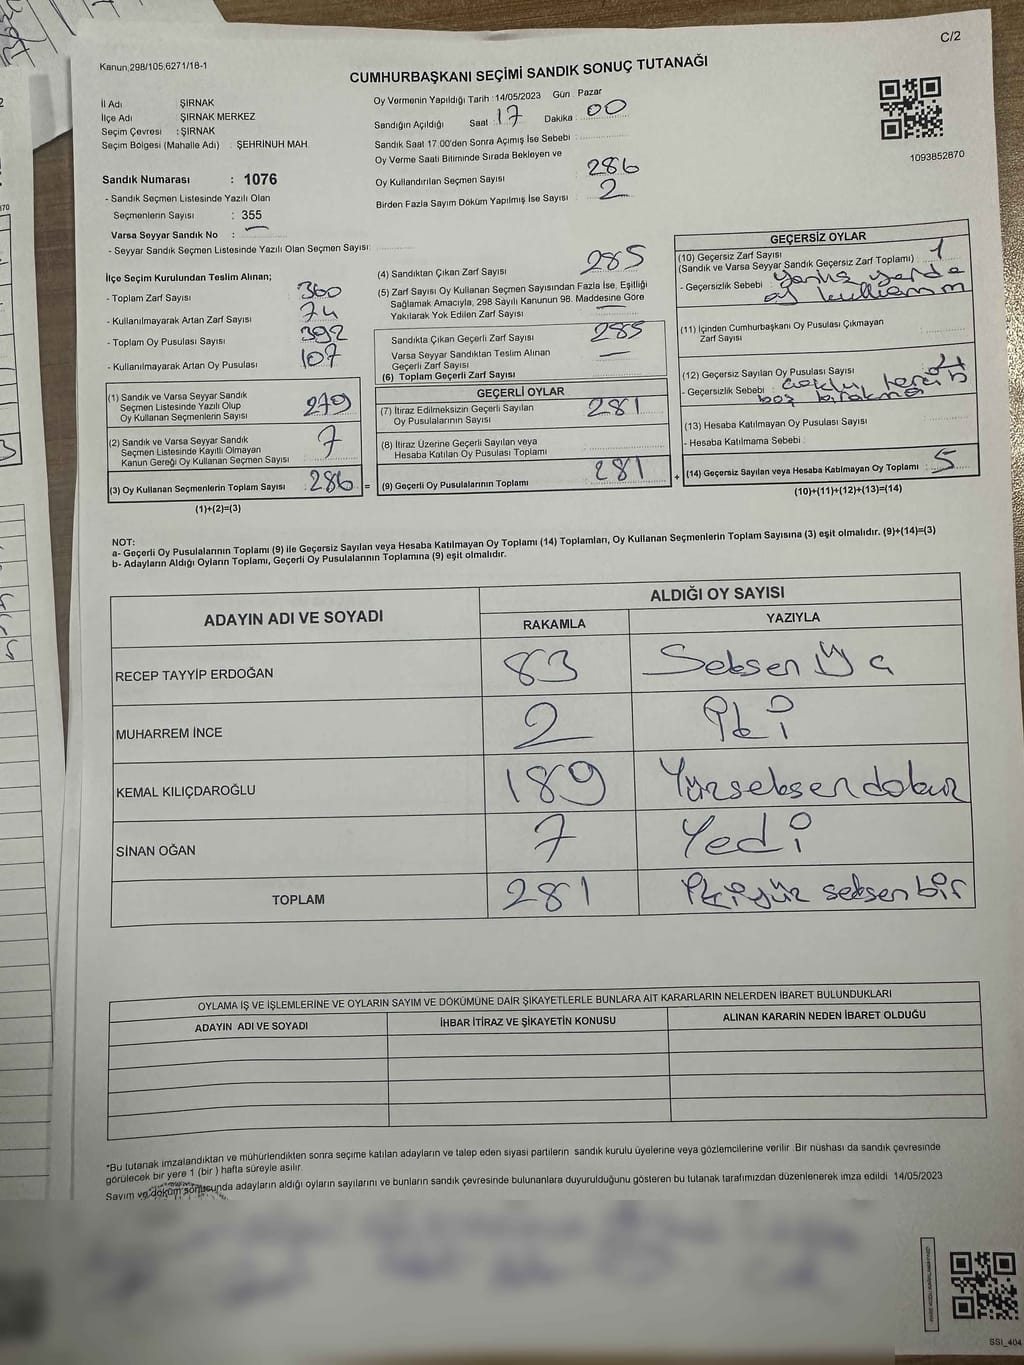 C/2
Kanun,298/105,6271/18-1
CUMHURBAŞKANI SEÇİMİ SANDIK SONUÇ TUTANAĞI
İl Adı ŞIRNAK
İlçe Adı ŞIRNAK MERKEZ
Seçim Çevresi : ŞIRNAK
Seçim Bölgesi (Mahalle Adı) : ŞEHRİNUH MAH.
Oy Vermenin Yapıldığı Tarih : 14/05/2023 Gün Pazar
Sandığın Açıldığı Saat : 17 Dakika : 00
Sandık Saat 17.00'den Sonra Açımış İse Sebebi :
Oy Verme Saati Bitiminde Sırada Bekleyen ve
Oy Kullandırılan Seçmen Sayısı 286
Birden Fazla Sayım Döküm Yapılmış İse Sayısı : 2
1093852870
Sandık Numarası : 1076
- Sandık Seçmen Listesinde Yazılı Olan
Seçmenlerin Sayısı : 355
Varsa Seyyar Sandık No : —
- Seyyar Sandık Seçmen Listesinde Yazılı Olan Seçmen Sayısı:
İlçe Seçim Kurulundan Teslim Alınan;
- Toplam Zarf Sayısı : 360
- Kullanılmayarak Artan Zarf Sayısı : 74
- Toplam Oy Pusulası Sayısı : 392
- Kullanılmayarak Artan Oy Pusulası : 107
(1) Sandık ve Varsa Seyyar Sandık
Seçmen Listesinde Yazılı Olup
Oy Kullanan Seçmenlerin Sayısı : 279
(2) Sandık ve Varsa Seyyar Sandık
Seçmen Listesinde Kayıtlı Olmayan
Kanun Gereği Oy Kullanan Seçmen Sayısı : 7
(3) Oy Kullanan Seçmenlerin Toplam Sayısı : 286 =
(1)+(2)=(3)
(4) Sandıktan Çıkan Zarf Sayısı : 285
(5) Zarf Sayısı Oy Kullanan Seçmen Sayısından Fazla İse, Eşitliği
Sağlamak Amacıyla, 298 Sayılı Kanunun 98. Maddesine Göre
Yakılarak Yok Edilen Zarf Sayısı : —
Sandıkta Çıkan Geçerli Zarf Sayısı : 285
Varsa Seyyar Sandıktan Teslim Alınan
Geçerli Zarf Sayısı : —
(6) Toplam Geçerli Zarf Sayısı :
GEÇERLİ OYLAR
(7) İtiraz Edilmeksizin Geçerli Sayılan
Oy Pusulasının Sayısı : 281
(8) İtiraz Üzerine Geçerli Sayılan veya
Hesaba Katılan Oy Pusulası Toplamı
(9) Geçerli Oy Pusulalarının Toplamı : 281 +
GEÇERSİZ OYLAR
(10) Geçersiz Zarf Sayısı
(Sandık ve Varsa Seyyar Sandık Geçersiz Zarf Toplamı) : 1
- Geçersizlik Sebebi : yanlış yerde
oy
(11) İçinden Cumhurbaşkanı Oy Pusulası Çıkmayan
Zarf Sayısı
(12) Geçersiz Sayılan Oy Pusulası Sayısı
- Geçersizlik Sebebi : çoklu tercih
boş bırakma
(13) Hesaba Katılmayan Oy Pusulası Sayısı :
- Hesaba Katılmama Sebebi :
(14) Geçersiz Sayılan veya Hesaba Katılmayan Oy Toplamı : 5
(10)+(11)+(12)+(13)=(14)
NOT:
a- Geçerli Oy Pusulalarının Toplamı (9) ile Geçersiz Sayılan veya Hesaba Katılmayan Oy Toplamı (14) Toplamları, Oy Kullanan Seçmenlerin Toplam Sayısına (3) eşit olmalıdır. (9)+(14)=(3)
b- Adayların Aldığı Oyların Toplamı, Geçerli Oy Pusulalarının Toplamına (9) eşit olmalıdır.
ADAYIN ADI VE SOYADI
ALDIĞI OY SAYISI
RAKAMLA YAZIYLA
RECEP TAYYİP ERDOĞAN 83 Seksen
MUHARREM İNCE 2 İki
KEMAL KILIÇDAROĞLU 189 Yüzseksendokuz
SİNAN OĞAN 7 Yedi
TOPLAM 281 İkiyüz seksen bir
OYLAMA İŞ VE İŞLEMLERİNE VE OYLARIN SAYIM VE DÖKÜMÜNE DAİR ŞİKAYETLERLE BUNLARA AİT KARARLARIN NELERDEN İBARET BULUNDUKLARI
ADAYIN ADI VE SOYADI İHBAR İTİRAZ VE ŞİKAYETİN KONUSU ALINAN KARARIN NEDEN İBARET OLDUĞU
*Bu tutanak imzalandıktan ve mühürlendikten sonra seçime katılan adayların ve talep eden siyasi partilerin sandık kurulu üyelerine veya gözlemcilerine verilir. Bir nüshası da sandık çevresinde
görülecek bir yere 1 (bir ) hafta süreyle asılır.
Sayım ve döküm sonucunda adayların aldığı oyların sayılarını ve bunların sandık çevresinde bulunanlara duyurulduğunu gösteren bu tutanak tarafımızdan düzenlenerek imza edildi 14/05/2023
SSI_404